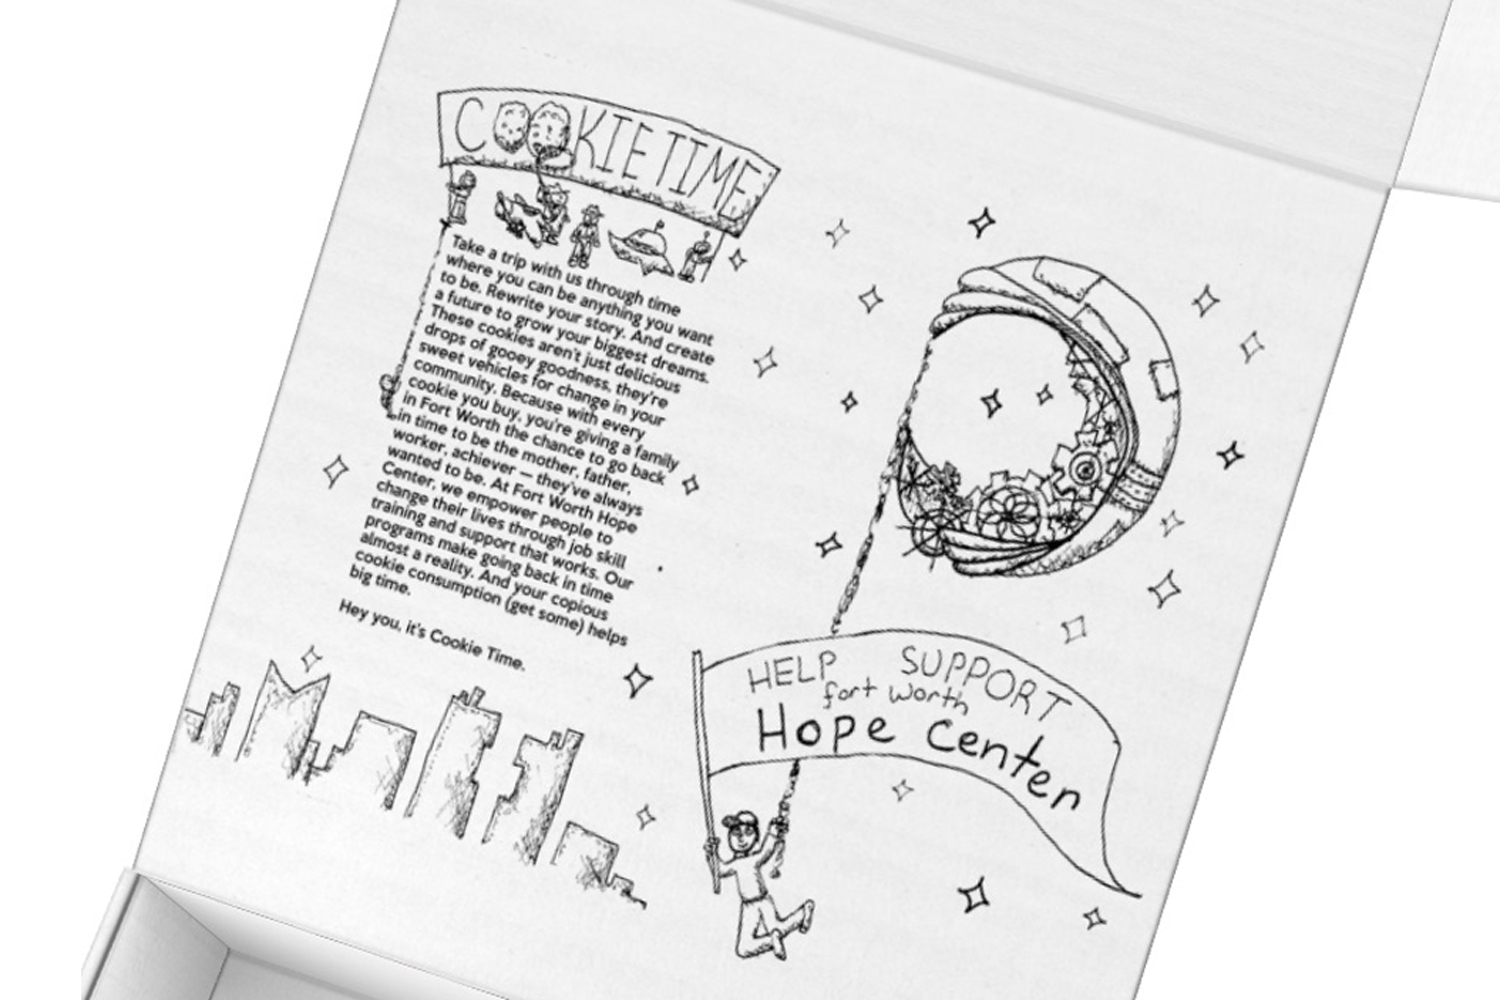 COOKIE TIME
Take a trip with us through time
where you can be anything you want
to be. Rewrite your story. And create
a future to grow your biggest dreams.
These cookies aren't just delicious
drops of gooey goodness, they're
sweet vehicles for change in your
community. Because with every
cookie you buy, you're giving a family
in Fort Worth the chance to go back
in time to be the mother, father,
worker, achiever — they've always
wanted to be. At Fort Worth Hope
Center, we empower people to
change their lives through job skill
training and support that works. Our
programs make going back in time
almost a reality. And your copious
cookie consumption (get some) helps
big time.
Hey you, it's Cookie Time.
HELP SUPPORT
fort worth
Hope Center